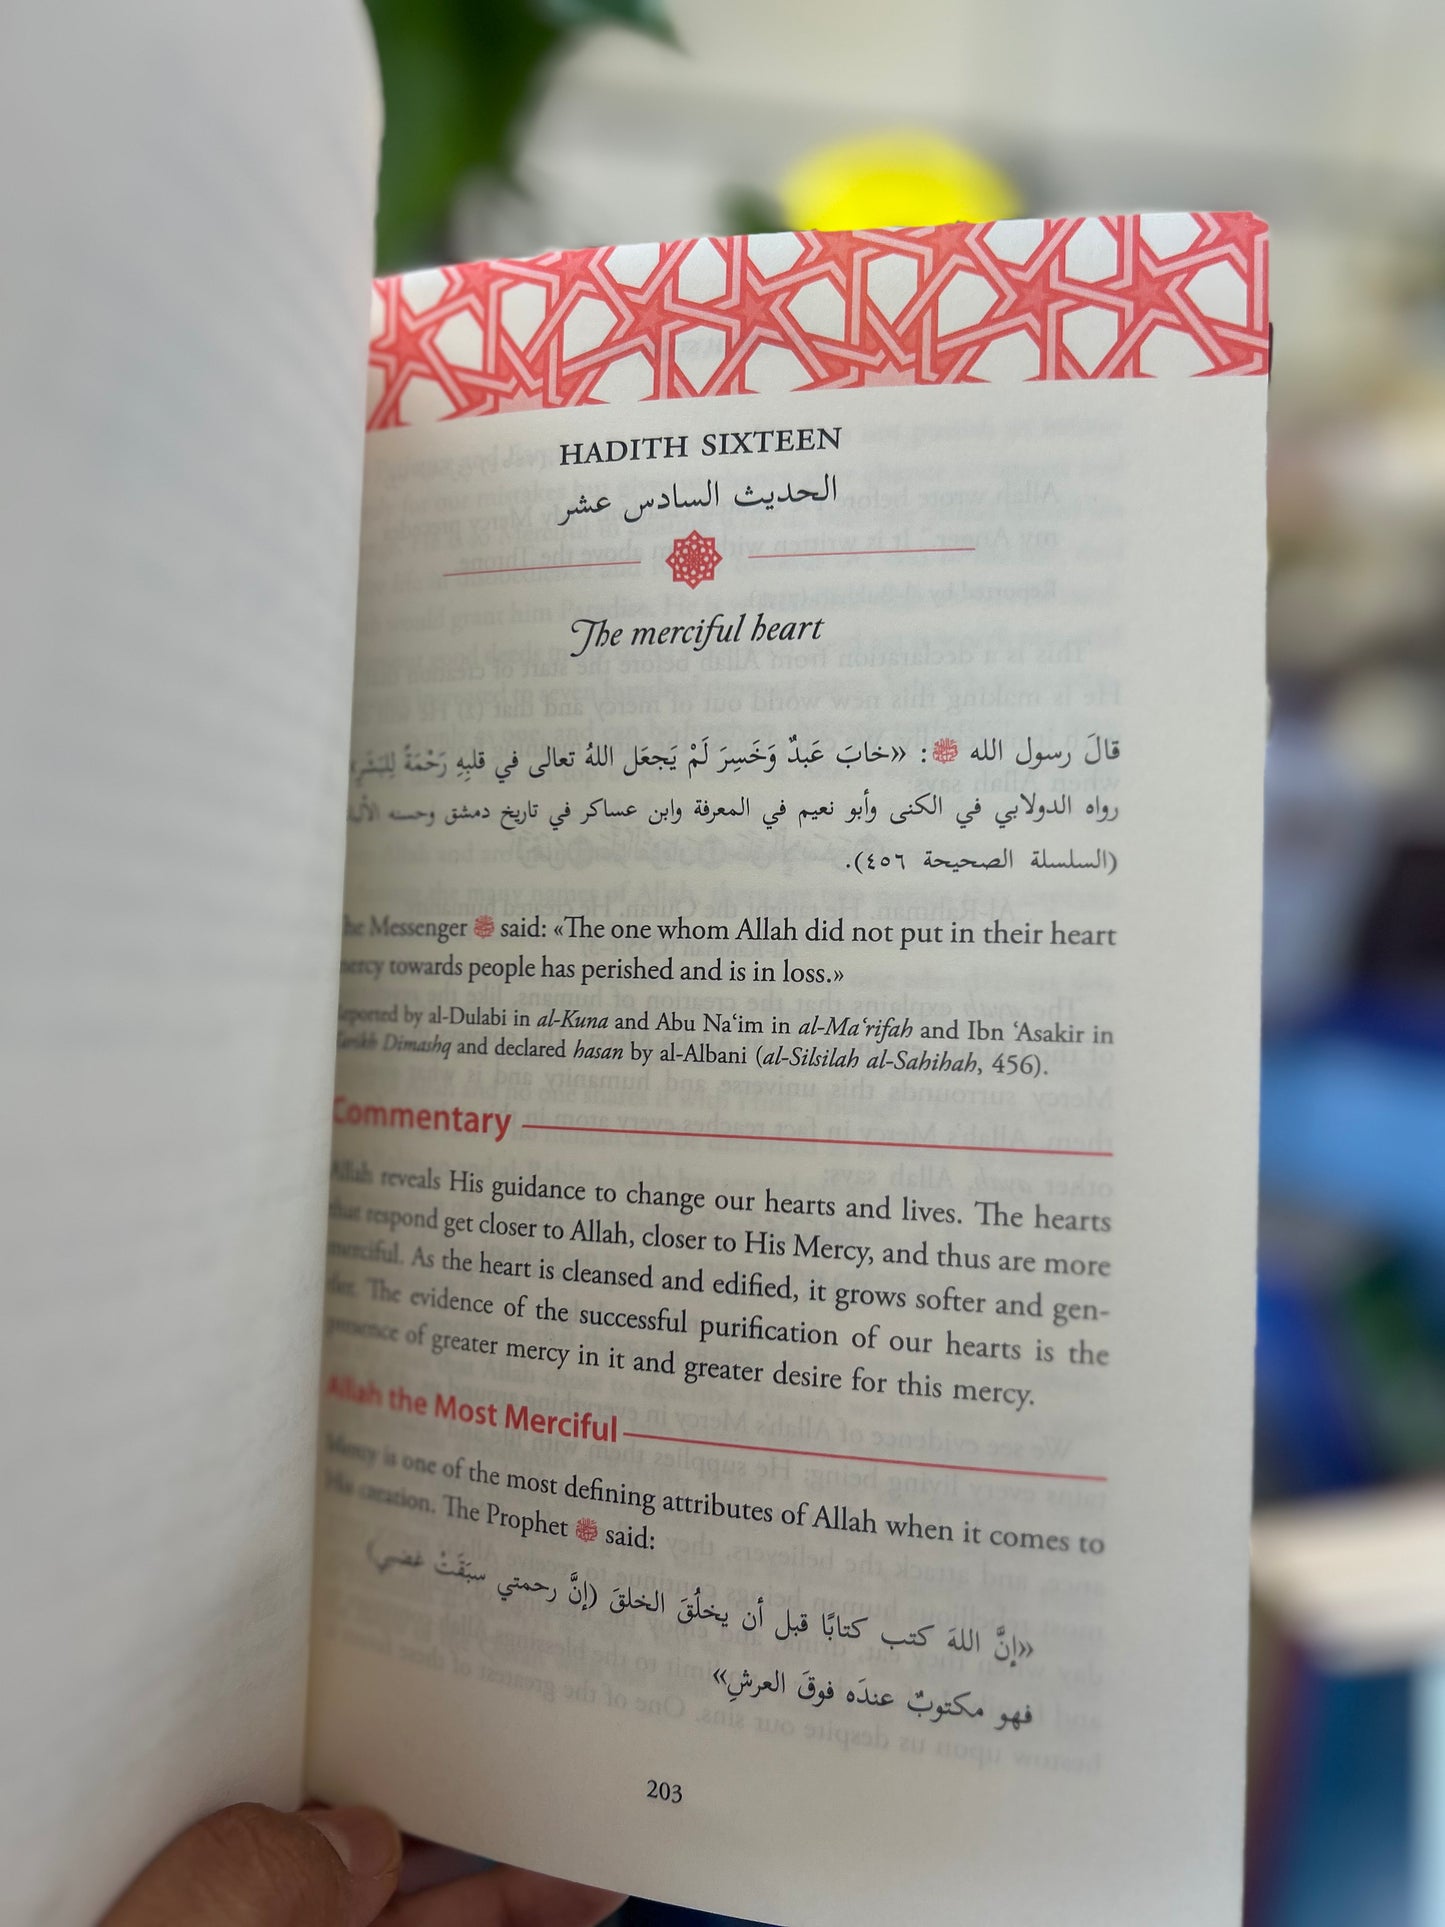 HADITH SIXTEEN
الحديث السادس عشر
The merciful heart
قالَ رسول الله ﷺ: «خابَ عَبدٌ وَخَسِرَ لَمْ يَجعَل اللهُ تعالى في قلبِهِ رَحْمَةً لِلبَشَرِ»
رواه الدولابي في الكنى وأبو نعيم في المعرفة وابن عساكر في تاريخ دمشق وحسنه
(السلسلة الصحيحة ٤٥٦).
The Messenger ﷺ said: «The one whom Allah did not put in their heart
mercy towards people has perished and is in loss.»
Reported by al-Dulabi in al-Kuna and Abu Na‘im in al-Ma‘rifah and Ibn ‘Asakir in
Tarikh Dimashq and declared hasan by al-Albani (al-Silsilah al-Sahihah, 456).
Commentary
Allah reveals His guidance to change our hearts and lives. The hearts
that respond get closer to Allah, closer to His Mercy, and thus are more
merciful. As the heart is cleansed and edified, it grows softer and gen-
tler. The evidence of the successful purification of our hearts is the
presence of greater mercy in it and greater desire for this mercy.
Allah the Most Merciful
Mercy is one of the most defining attributes of Allah when it comes to
His creation. The Prophet ﷺ said:
«إنَّ اللهَ كتب كتابًا قبل أن يخلُقَ الخلقَ (إنَّ رحمتي سبَقَتْ غضبي)
فهو مكتوبٌ عندَه فوقَ العرشِ»
203